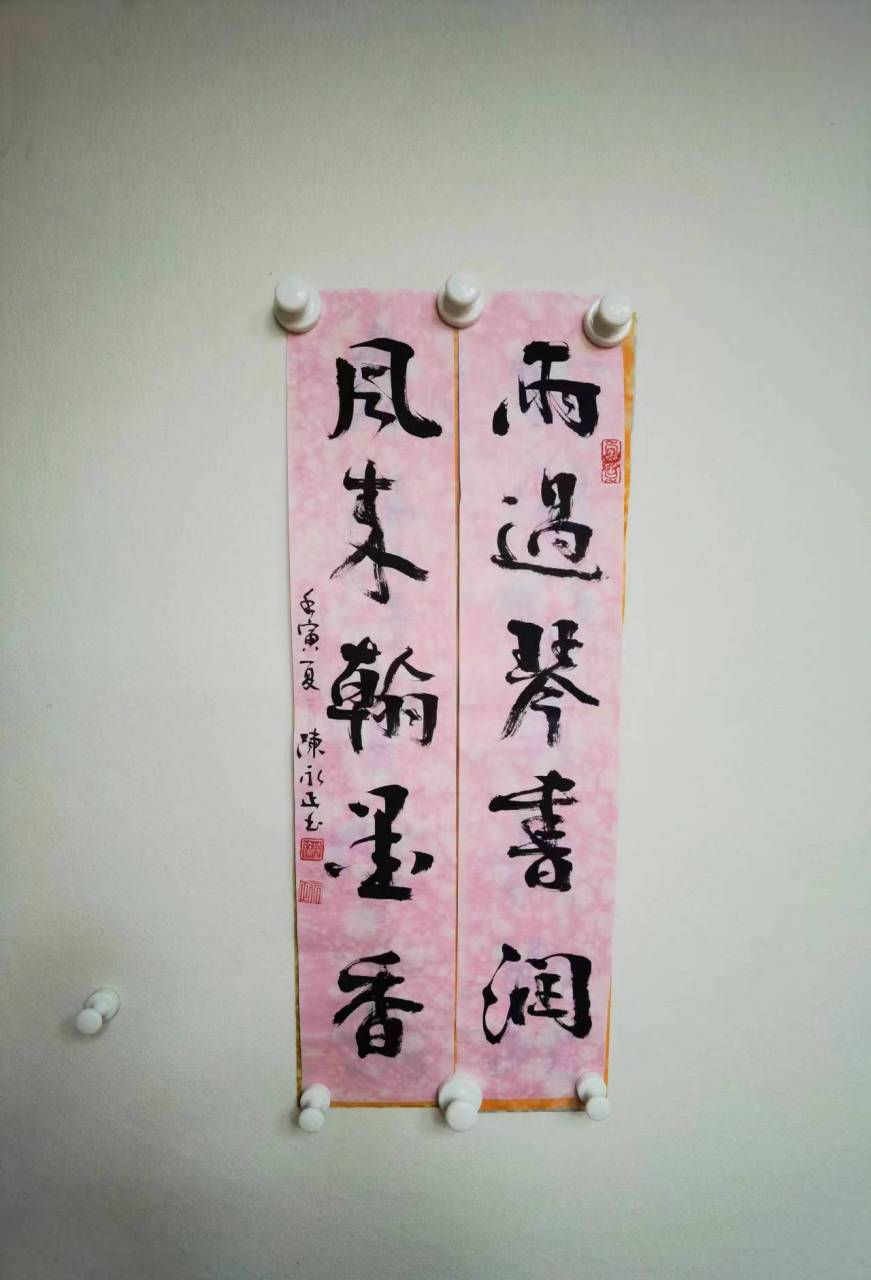 雨過琴書潤
風来翰墨香
壬寅夏 陳永正书